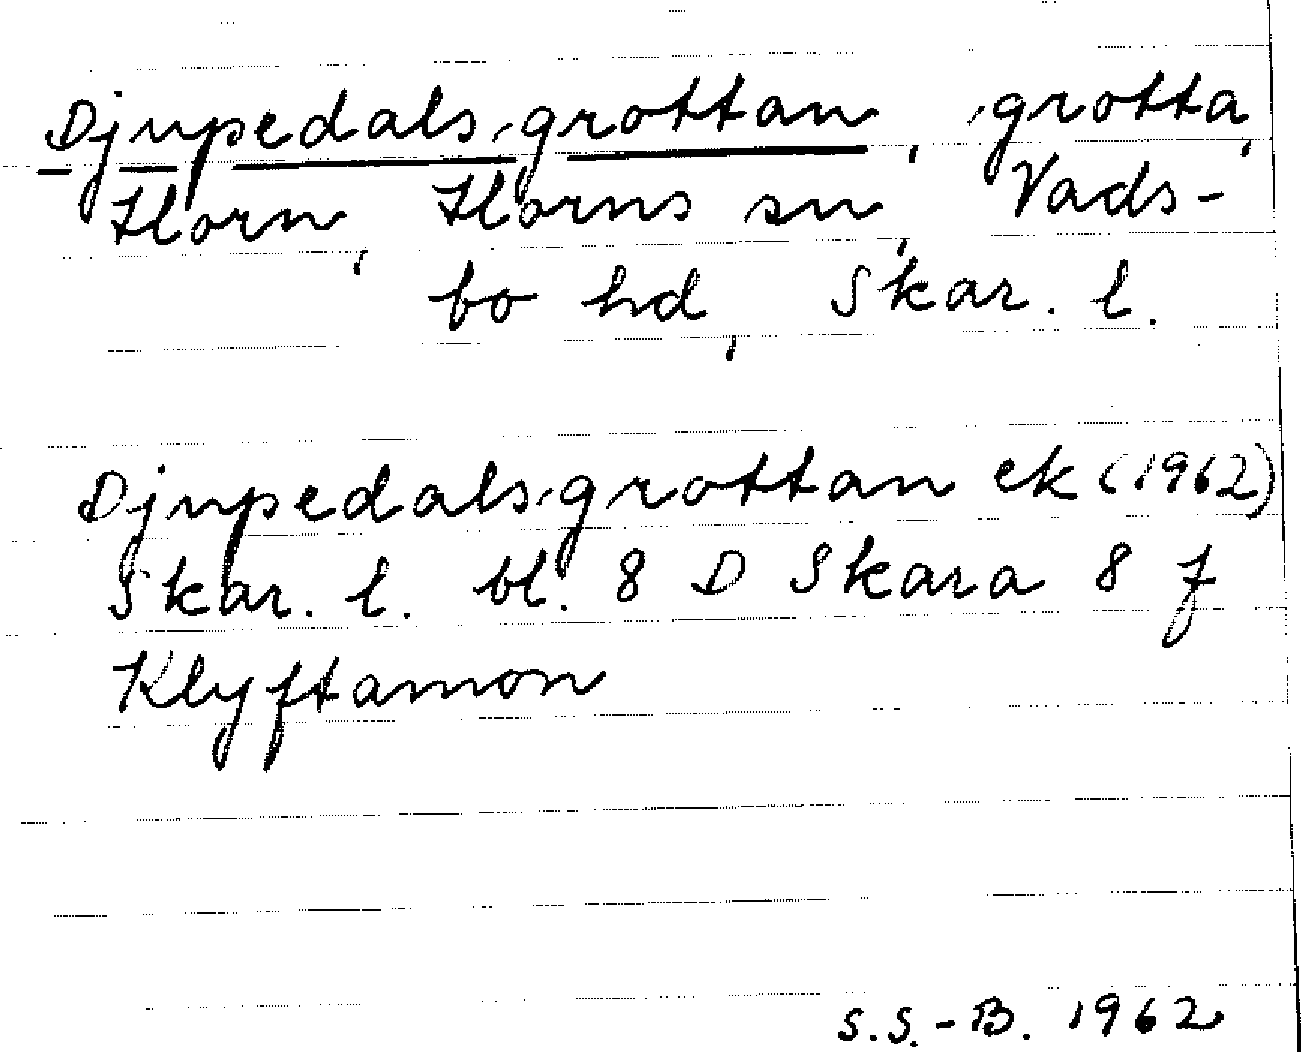 Djupedalsgrottan, grotta,
Horn, Horns sn, Vads-
bo hd, Skar. l.
Djupedalsgrottan ek (1962)
Skar. l. bl. 8 D Skara 8 f
Klyftamon
S.S.-B. 1962